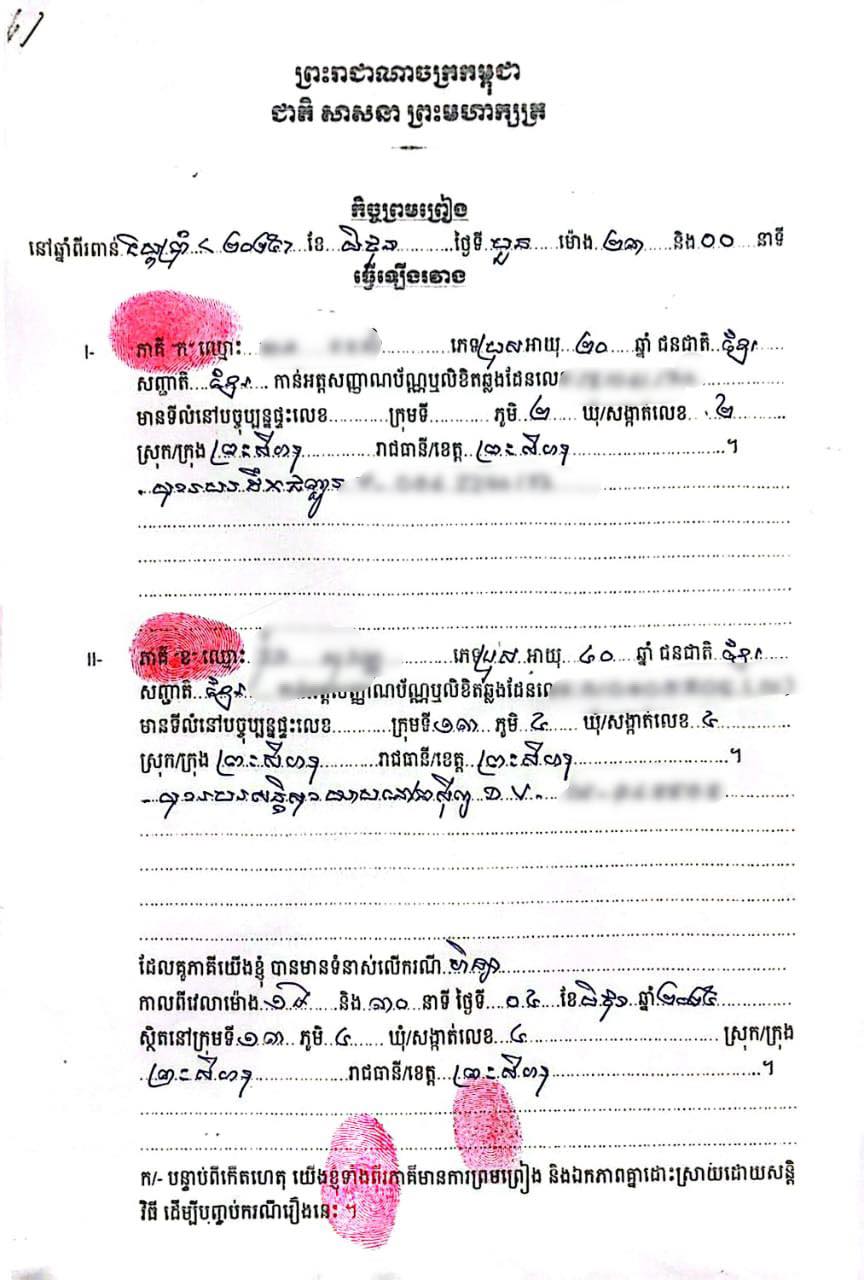 ព្រះរាជាណាចក្រកម្ពុជា
ជាតិ សាសនា ព្រះមហាក្សត្រ
កិច្ចព្រមព្រៀង
នៅឆ្នាំពីរពាន់ ២០២៥ ខែ មិថុនា ថ្ងៃទី បួន ម៉ោង ២៣ និង ០០ នាទី
ធ្វើឡើងរវាង
I- ភាគី "ក" ឈ្មោះ ភេទ ប្រុស អាយុ ២០ ឆ្នាំ ជនជាតិ ខ្មែរ
សញ្ជាតិ ខ្មែរ កាន់អត្តសញ្ញាណប័ណ្ណឬលិខិតឆ្លងដែនលេខ
មានទីលំនៅបច្ចុប្បន្នផ្ទះលេខ ក្រុមទី ភូមិ ២ ឃុំ/សង្កាត់លេខ ២
ស្រុក/ក្រុង ព្រះសីហនុ រាជធានី/ខេត្ត ព្រះសីហនុ ។
មុខរបរ ដឹកជញ្ជូន
II- ភាគី "ខ" ឈ្មោះ ភេទ ប្រុស អាយុ ៤០ ឆ្នាំ ជនជាតិ ខ្មែរ
សញ្ជាតិ ខ្មែរ អត្តសញ្ញាណប័ណ្ណឬលិខិតឆ្លងដែនលេខ
មានទីលំនៅបច្ចុប្បន្នផ្ទះលេខ ក្រុមទី ១៣ ភូមិ ៤ ឃុំ/សង្កាត់លេខ ៤
ស្រុក/ក្រុង ព្រះសីហនុ រាជធានី/ខេត្ត ព្រះសីហនុ ។
មុខរបរ សន្តិសុខ
ដែលគូភាគីយើងខ្ញុំ បានមានទំនាស់លើករណី ហិង្សា
កាលពីវេលាម៉ោង ១៩ និង ៣០ នាទី ថ្ងៃទី ០៤ ខែ មិថុនា ឆ្នាំ ២០២៥
ស្ថិតនៅក្រុមទី ១៣ ភូមិ ៤ ឃុំ/សង្កាត់លេខ ៤ ស្រុក/ក្រុង
ព្រះសីហនុ រាជធានី/ខេត្ត ព្រះសីហនុ ។
ក/- បន្ទាប់ពីកើតហេតុ យើងខ្ញុំទាំងពីរភាគីមានការព្រមព្រៀង និងឯកភាពគ្នាដោះស្រាយដោយសន្តិ
វិធី ដើម្បីបញ្ចប់ករណីរឿងនេះ ។